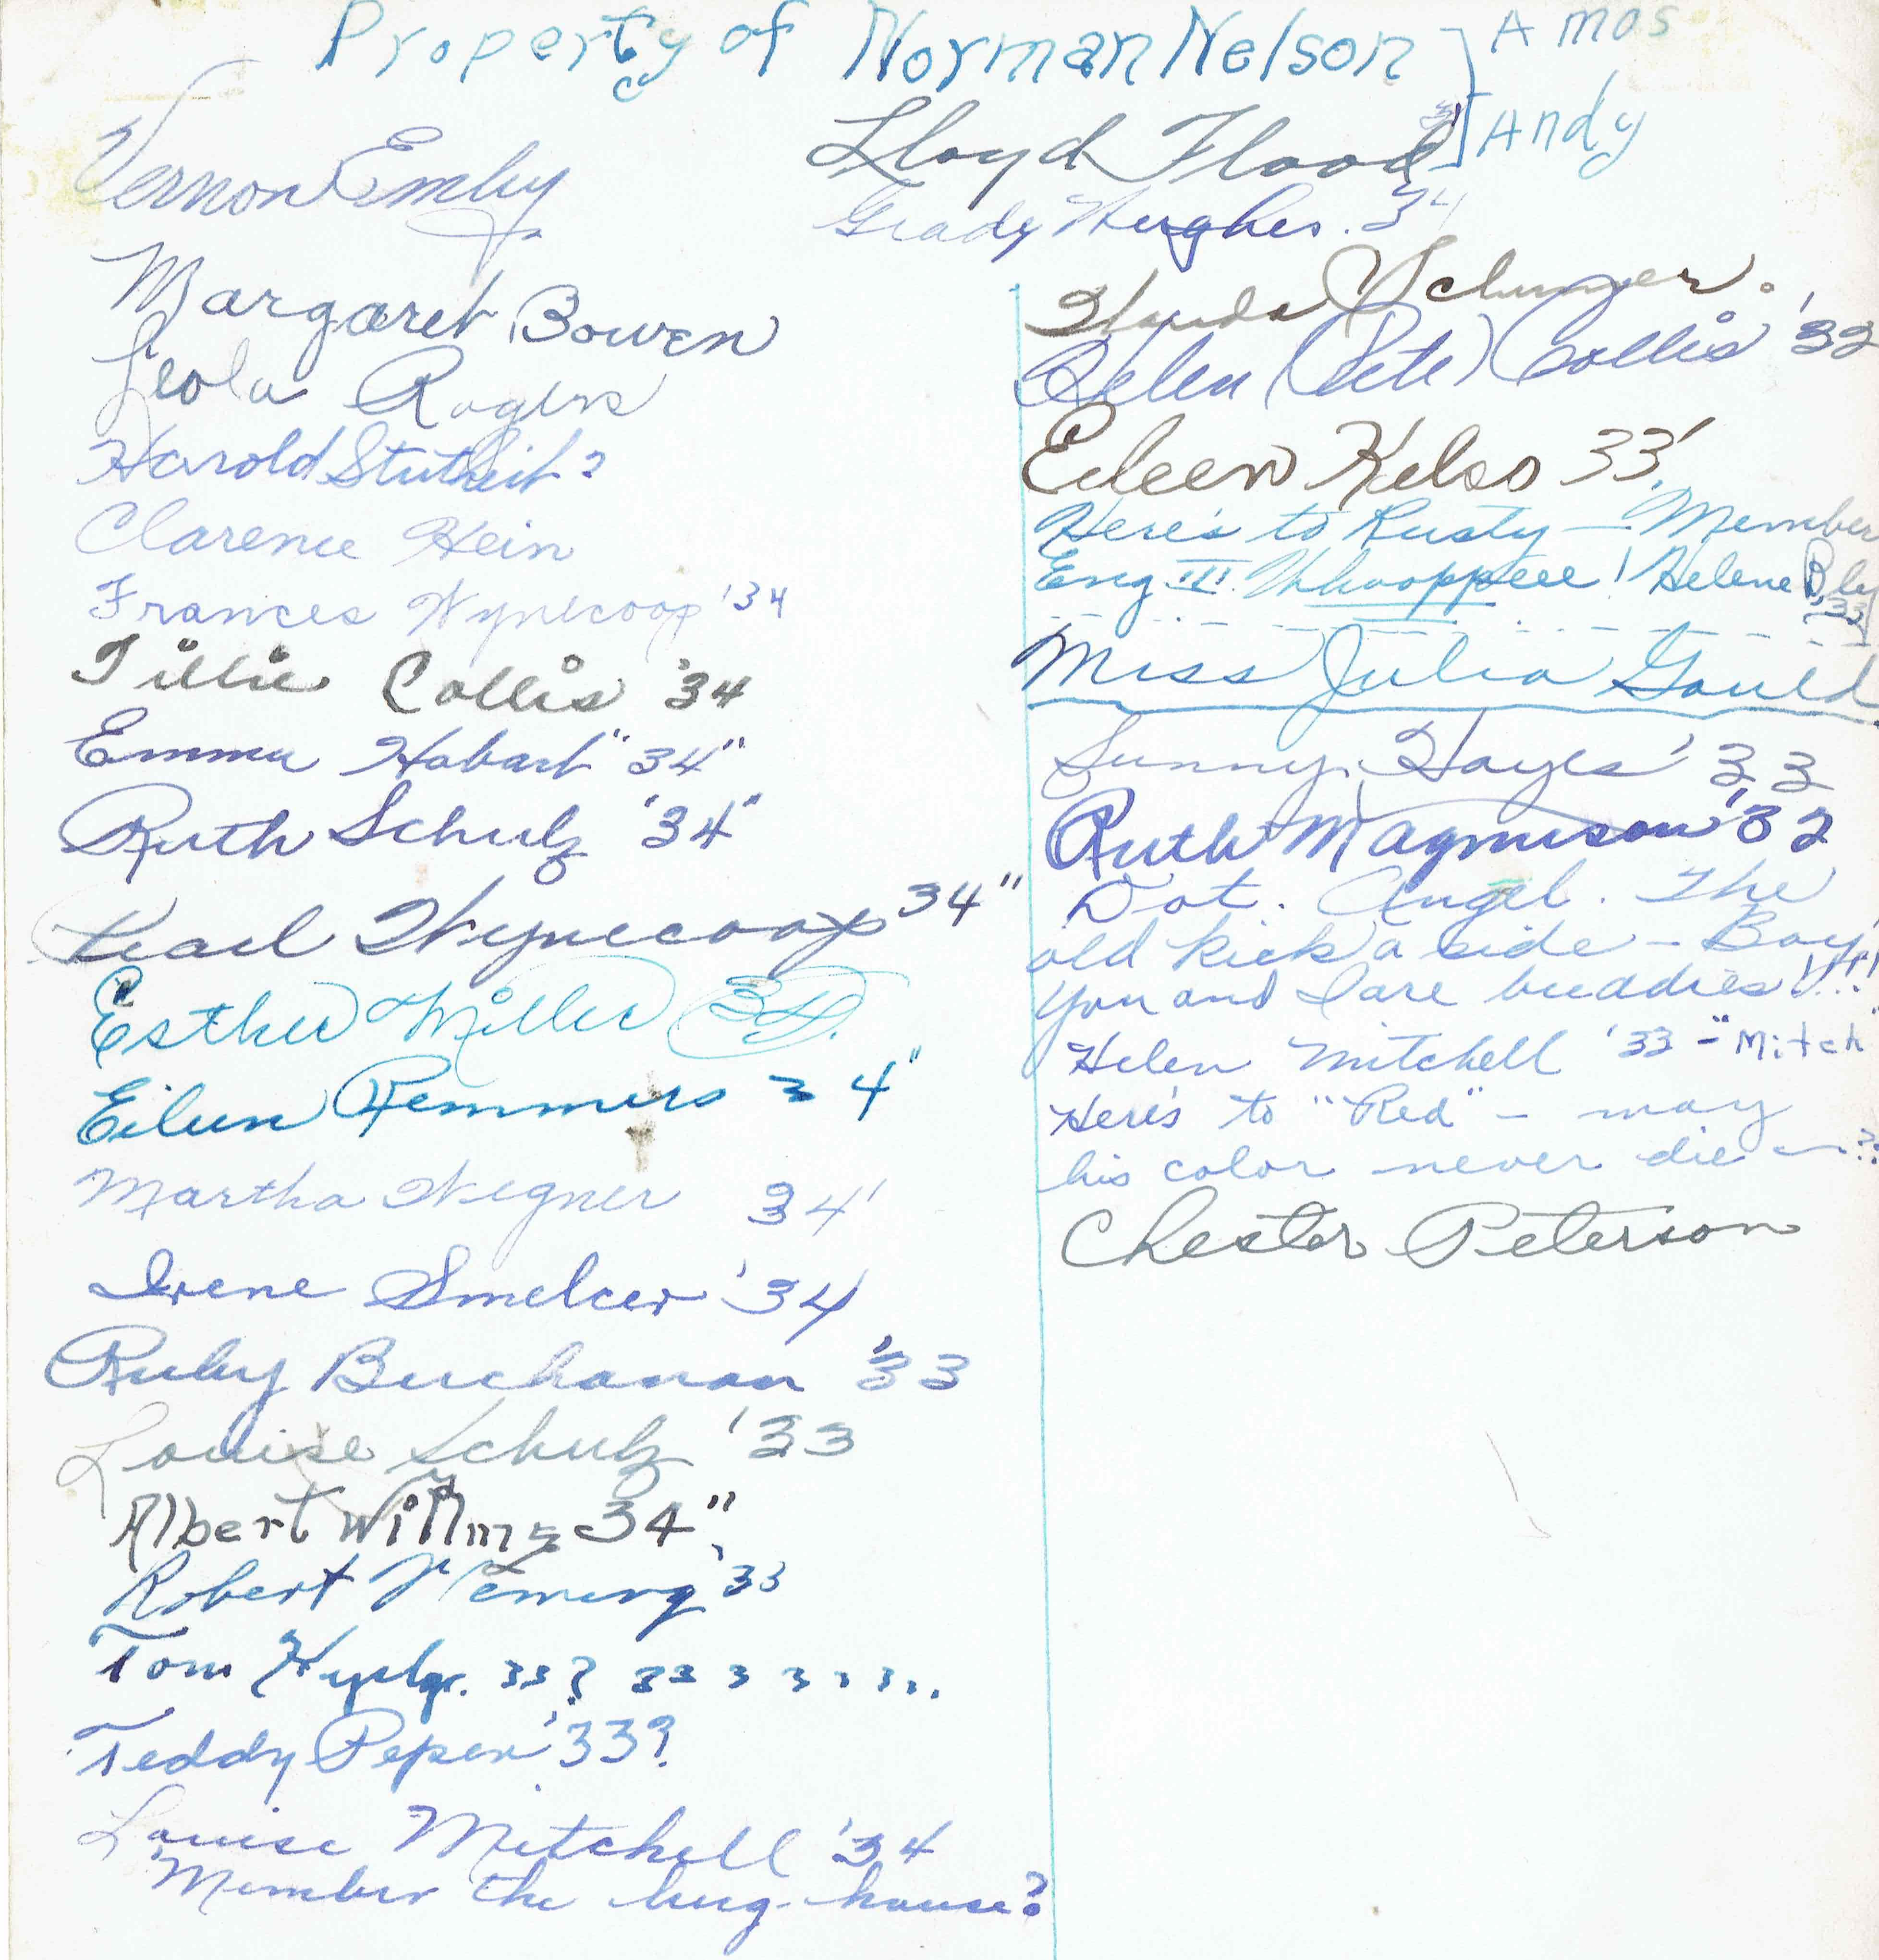 Property of Norman Nelson
Amos
Andy
Lloyd Flood
Grady Hughes. 34
Vernon Emby
Margaret Bowen
Leola Rogers
Harold Stutheit?
Clarence Hein
Frances Wynecoop '34
Tillie Collis '34
Emma Hobart "34"
Ruth Schulz "34"
Pearl Wynecoop 34"
Esther Miller 34.
Eileen Remmers 34"
Martha Wegner 34'
Irene Smelcer '34
Ruby Buchanan '33
Louise Schulz '33
Albert Willms 34"
Robert Fleming '33
Tom 33? 33 3 3 3 3..
Teddy Peper '33?
Louise Mitchell '34
'Member the bug-house?
Helen (Pete) Collis '32
Eileen Kelso 33'
Here's to Rusty — Member
Eng III. Whooppeee! Helene
Miss Julia Gould
Sunny Hayes '33
Ruth Magnuson '32
Dot. Angel. The
old kick a side - Boy,
you and I are buddies!!!!
Helen Mitchell '33 - "Mitch"
Here's to "Red" - may
his color never die —??
Chester Peterson